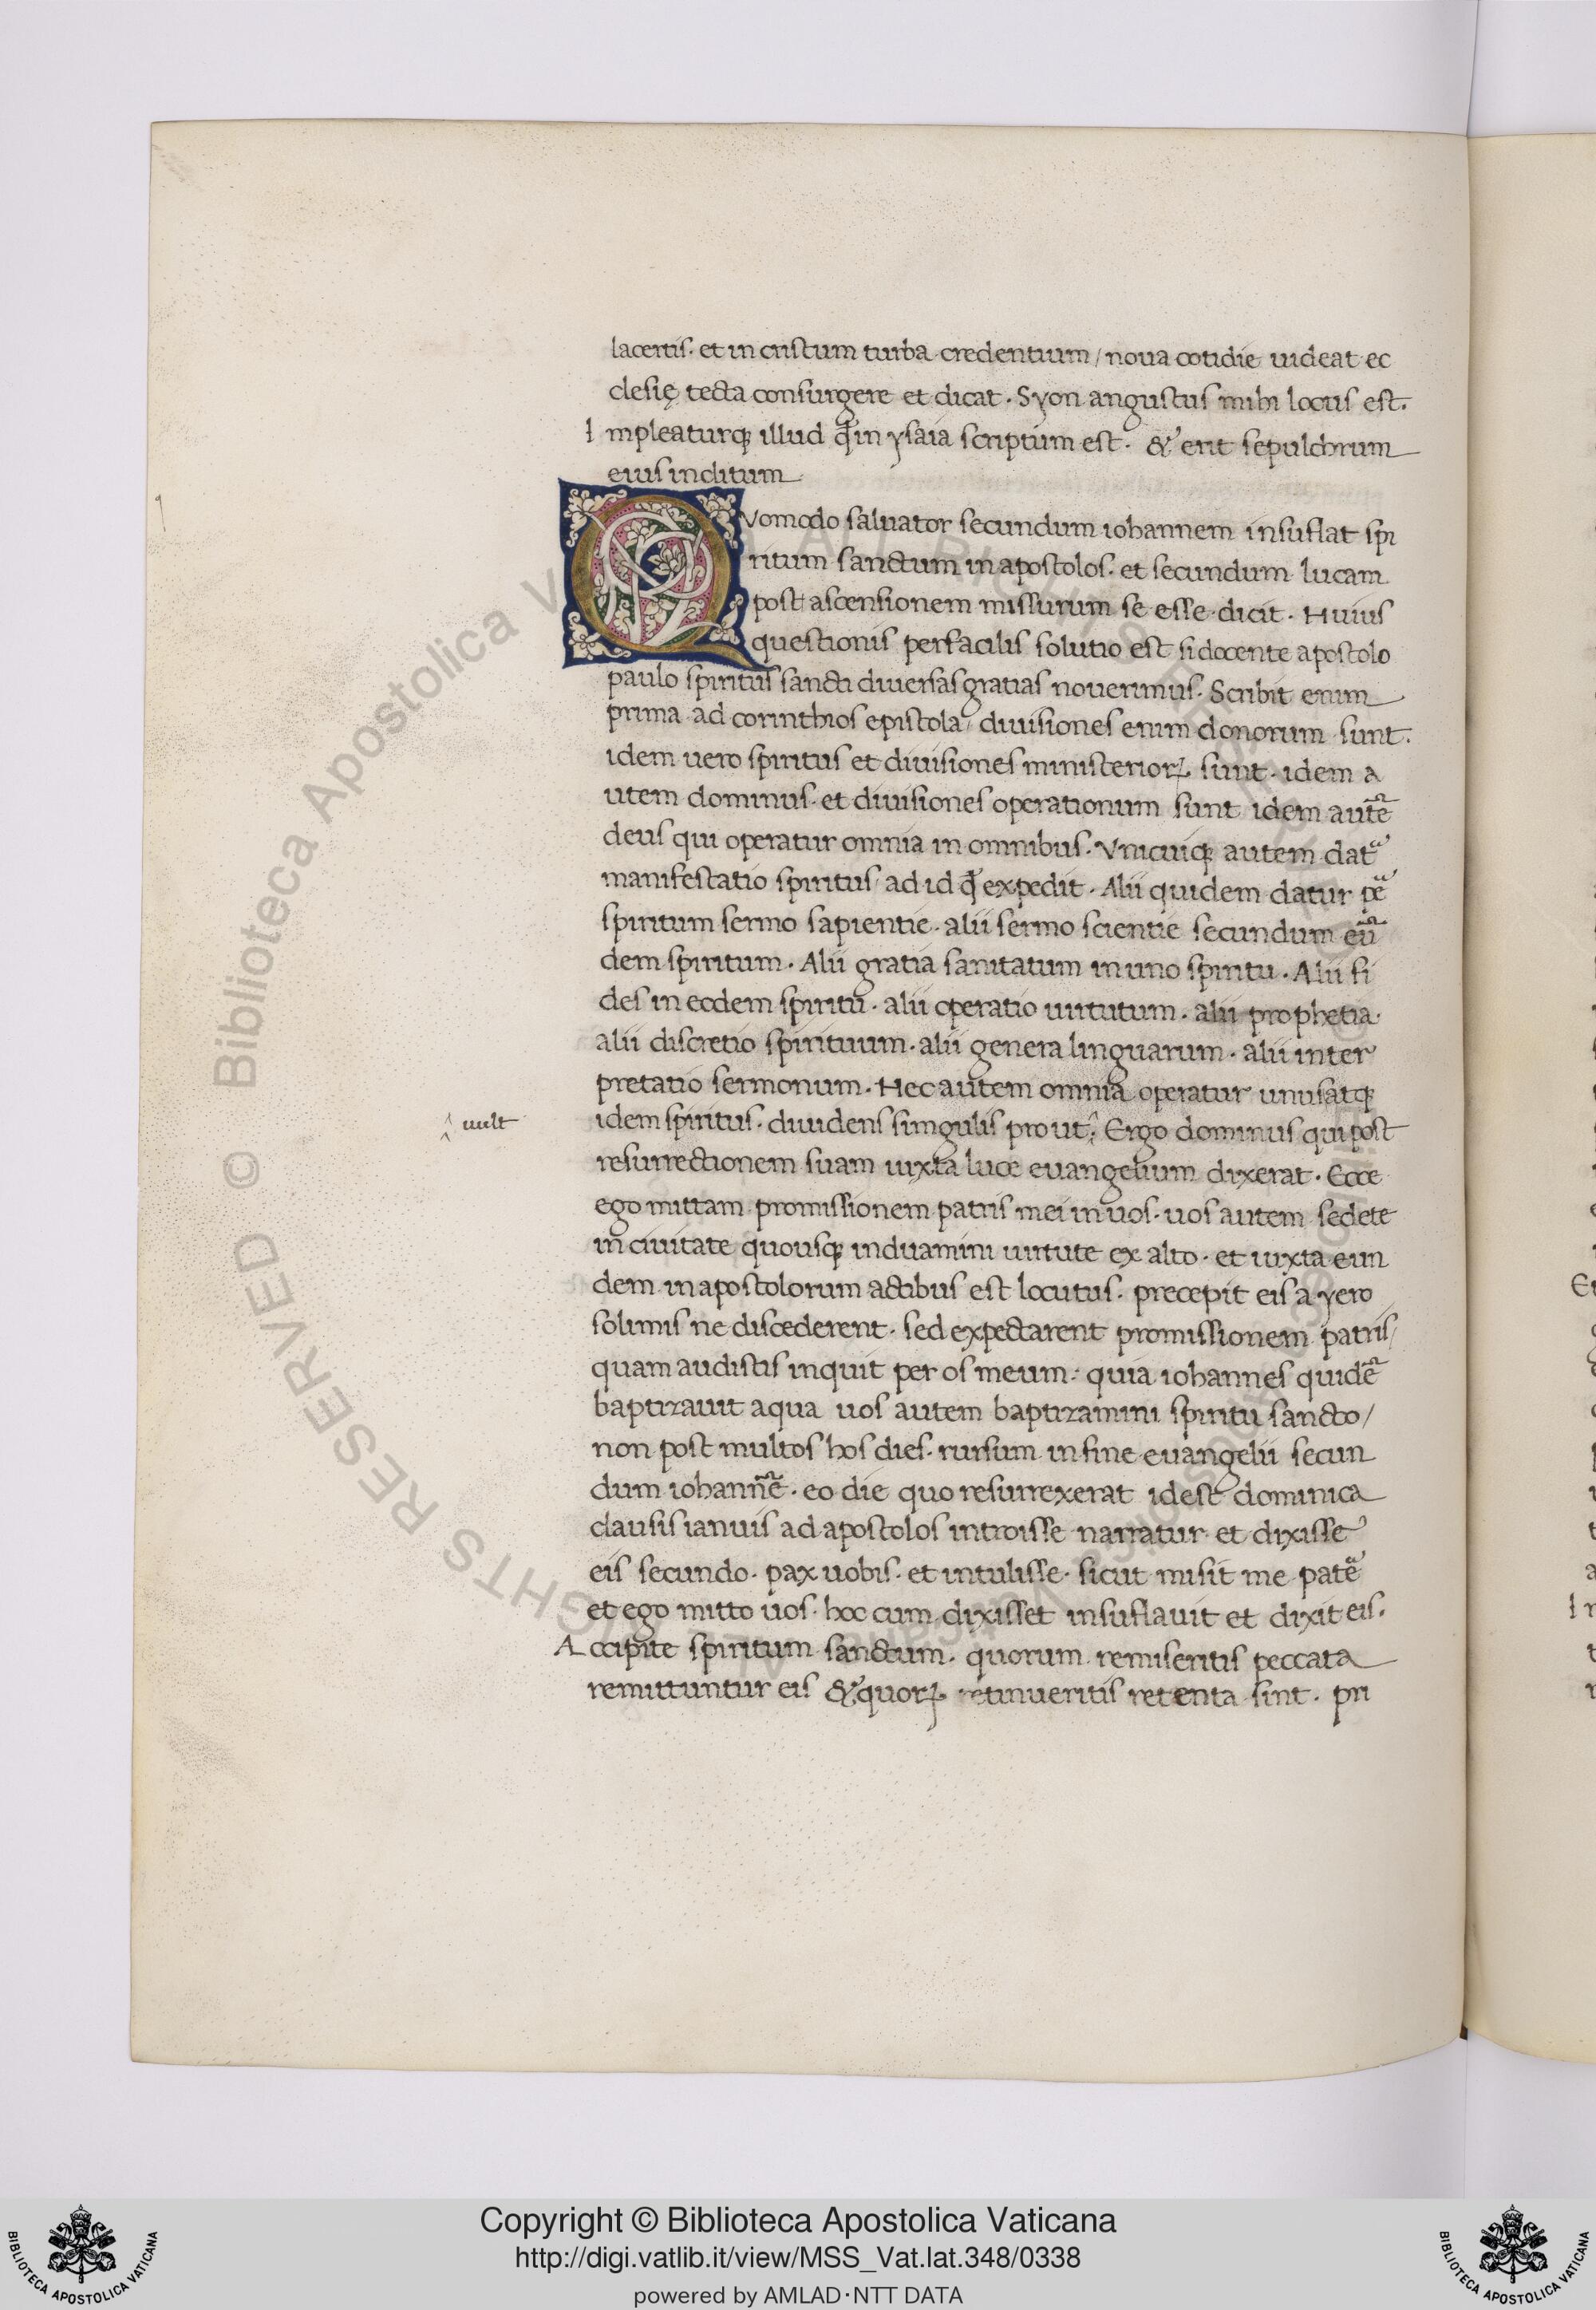 lacertis. et in cristum turba credentium / noua cotidie uideat ec
clesię tecta consurgere et dicat. Syon angustus mihi locus est.
Impleaturq; illud qđ in ysaia scriptum est. & erit sepulchrum
eius inclitum
Quomodo saluator secundum iohannem insuflat spi
ritum sanctum in apostolos. et secundum lucam
post ascensionem missurum se esse dicit. Huius
questionis perfacilis solutio est si docente apostolo
paulo spiritus sancti diuersas gratias nouerimus. Scribit enim
prima ad corinthios epistola / diuisiones enim donorum sunt.
idem uero spiritus et diuisiones ministerioꝝ sunt. idem a
utem dominus. et diuisiones operationum sunt idem autē
deus qui operatur omnia in omnibus. Vnicuiq; autem dat᷑
manifestatio spiritus ad id qđ expedit. Alii quidem datur pe᷑
spiritum sermo sapientie. alii sermo scientie secundum eū
dem spiritum. Alii gratia sanitatum in uno spiritu. Alii fi
des in eodem spiritu. alii operatio uirtutum. alii prophetia.
alii discretio spirituum. alii genera linguarum. alii inter
pretatio sermonum. Hec autem omnia operatur unus atq;
uult
idem spiritus. diuidens singulis prout. Ergo dominus qui post
resurrectionem suam iuxta luce euangelium dixerat. Ecce
ego mittam promissionem patris mei in uos. uos autem sedete
in ciuitate quousq; induamini uirtute ex alto. et iuxta eun
dem in apostolorum actibus est locutus. precepit eis a yero
solimis ne discederent. sed expectarent promissionem patris/
quam audistis inquit per os meum: quia iohannes quidē
baptizauit aqua uos autem baptizamini spiritu sancto /
non post multos hos dies. rursum in fine euangelii secun
dum iohannē. eo die quo resurrexerat idest dominica
clausis ianuis ad apostolos introisse narratur et dixisse
eis secundo. pax uobis. et intulisse. sicut misit me pate᷑
et ego mitto uos. hoc cum dixisset insuflauit et dixit eis.
Accipite spiritum sanctum. quorum remiseritis peccata
remittuntur eis & quoꝝ retinueritis retenta sint. pri
© Biblioteca Apostolica Vaticana ALL RIGHTS RESERVED
Copyright © Biblioteca Apostolica Vaticana
http://digi.vatlib.it/view/MSS_Vat.lat.348/0338
powered by AMLAD·NTT DATA
BIBLIOTECA APOSTOLICA VATICANA
BIBLIOTECA APOSTOLICA VATICANA